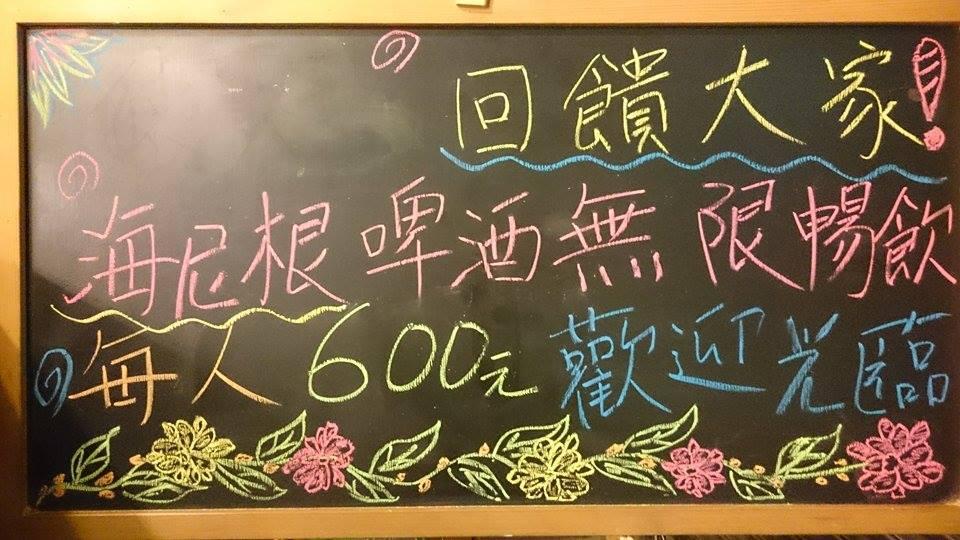 回饋大家!
海尼根啤酒無限暢飲
每人600元 歡迎光臨